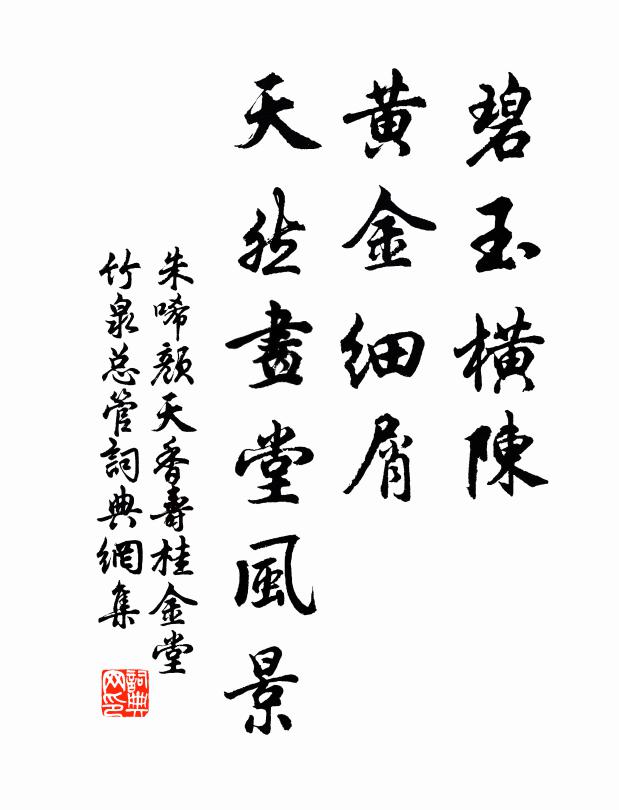 碧玉橫陳
黃金細屑
天然畫堂風景
朱唏顏天香壽桂金堂
竹泉总管詞典網集
詞典
网印